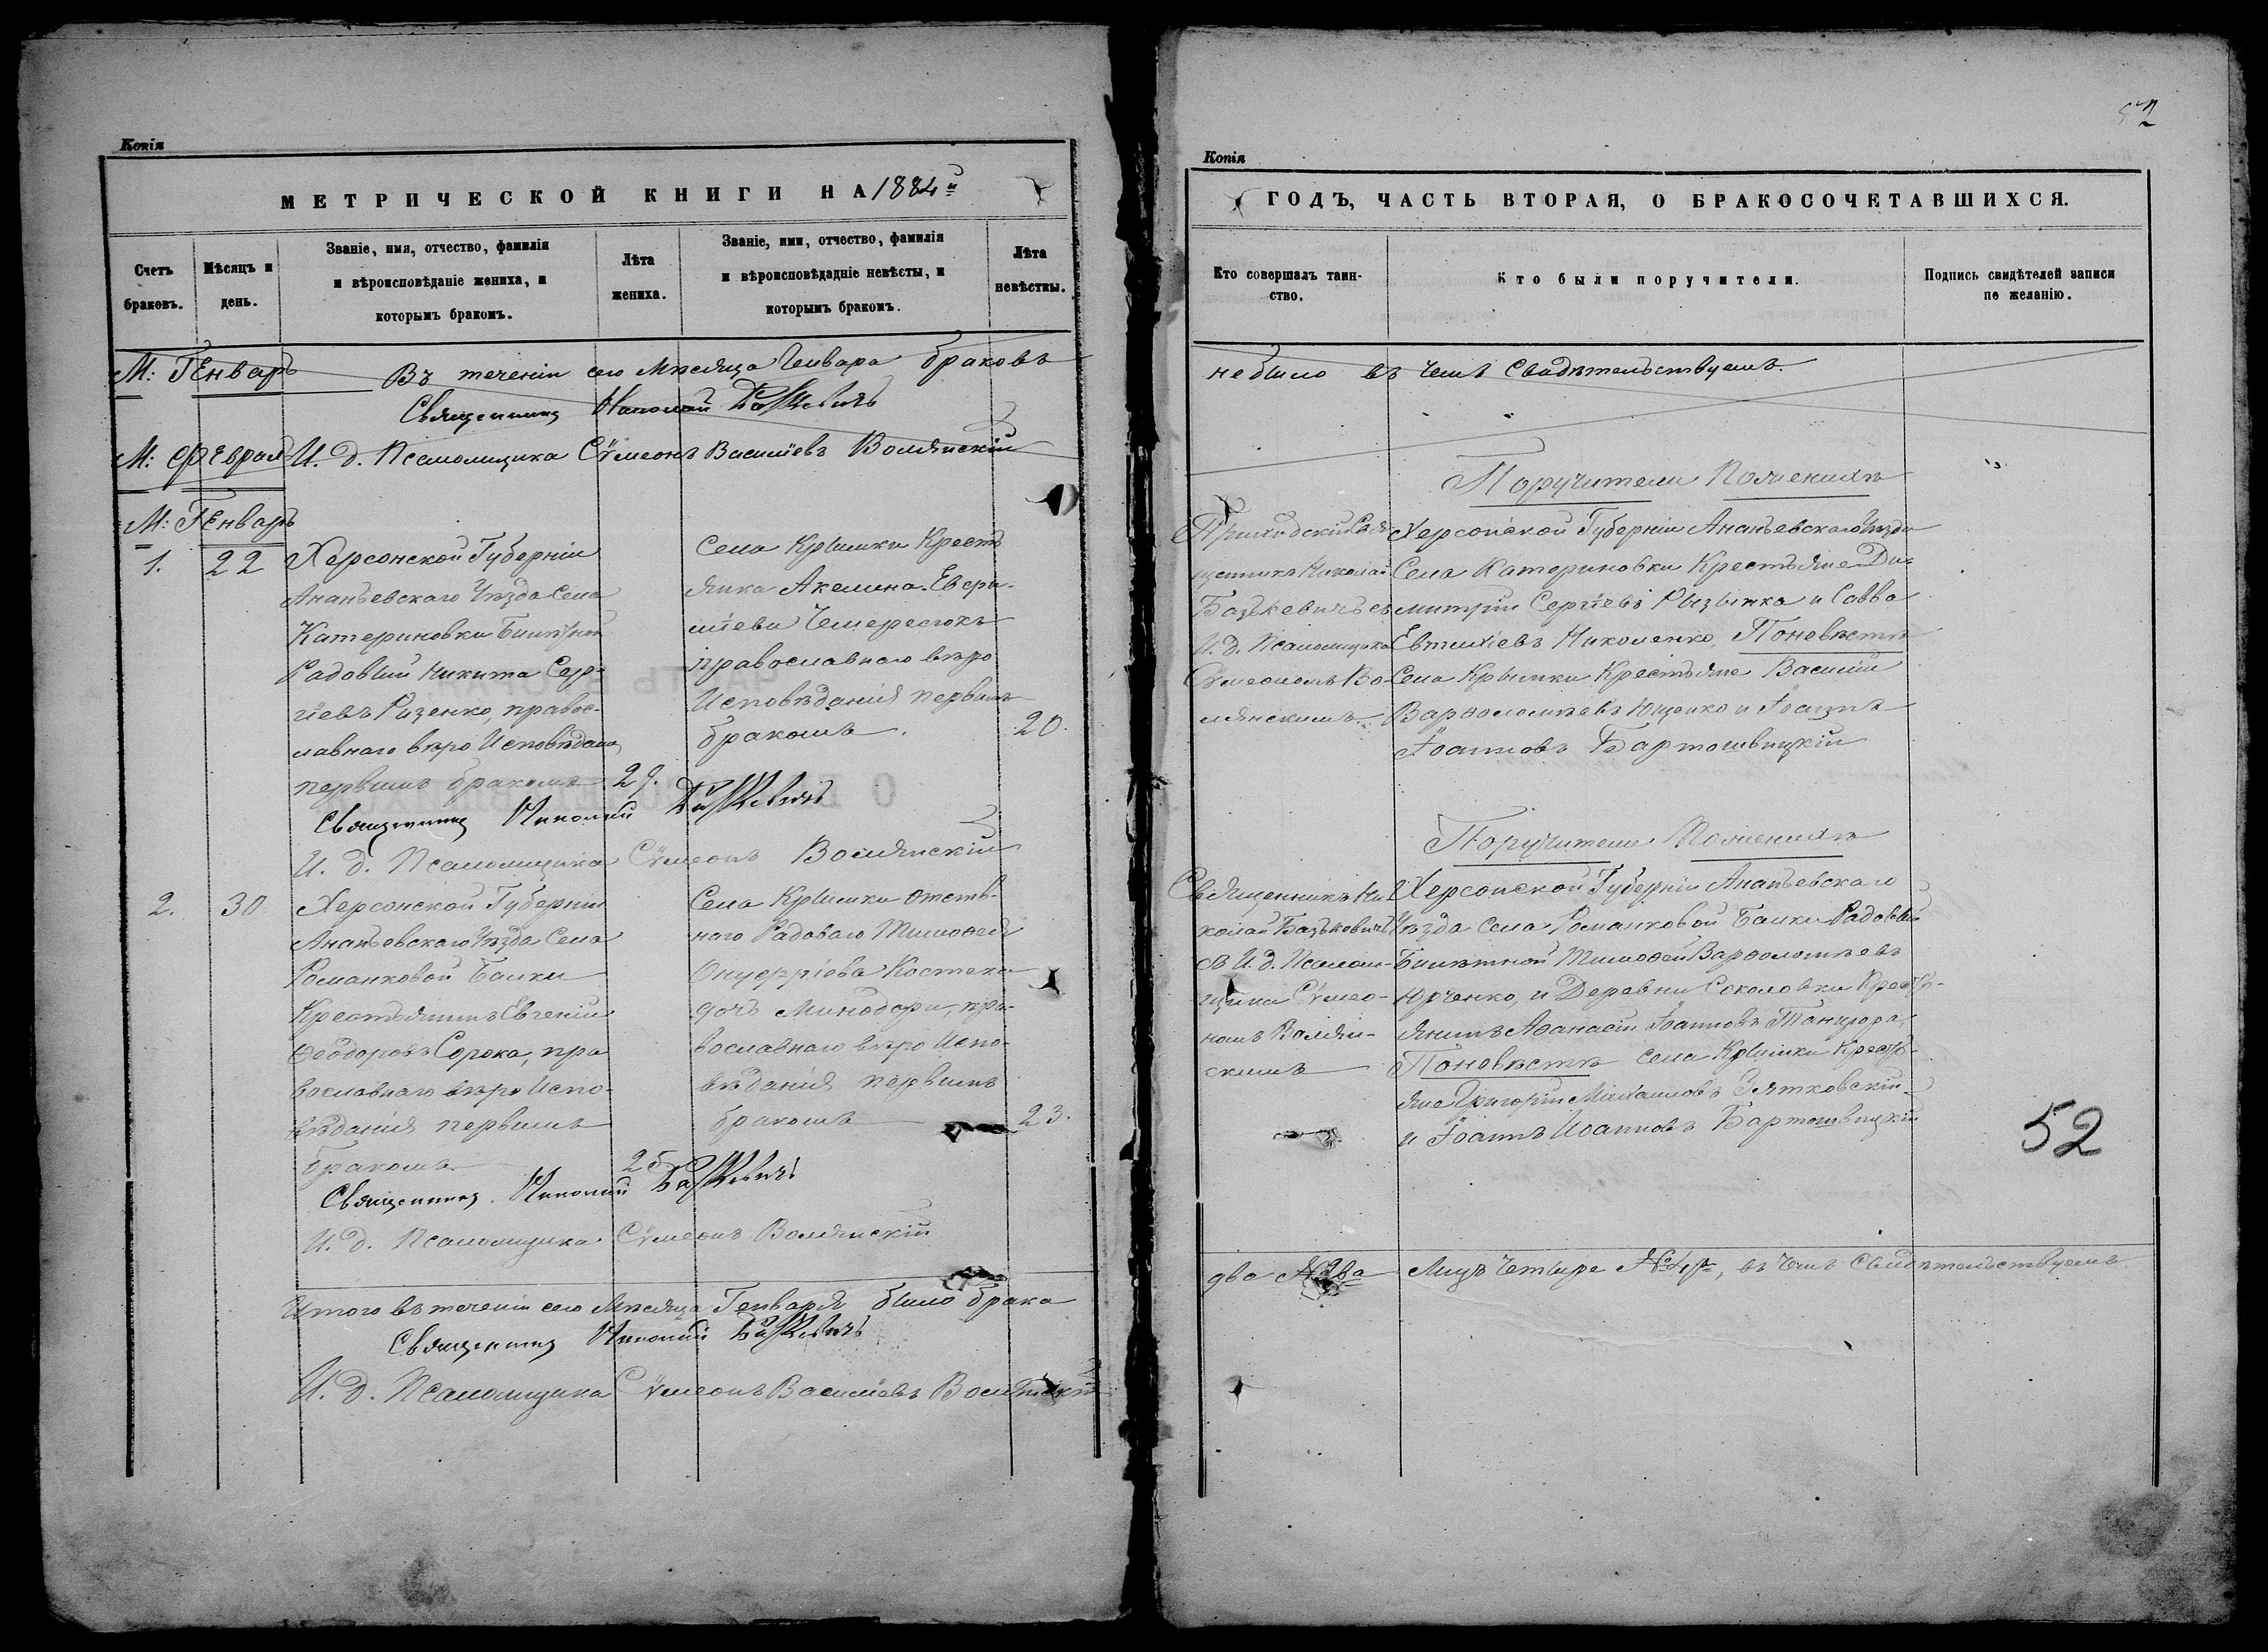 Копія
МЕТРИЧЕСКОЙ КНИГИ НА 1884й
Счетъ браковъ.
Мѣсяцъ и день.
Званіе, имя, отчество, фамилія и вѣроисповѣданіе жениха, и которымъ бракомъ.
Лѣта жениха.
Званіе, имя, отчество, фамилія и вѣроисповѣдадніе невѣсты, и которымъ бракомъ.
Лѣта невѣсты.
М: Генварь
Въ теченіи сего Мѣсяца Генвара браковъ
Священникъ Николай Базкевичъ
М: Февраль И. д. Псаломщика Сѵмеонъ Василіевъ Волянскій
М: Генварь
1.
22
Херсонской Губерніи
Ананьевскаго Уѣзда Села
Катериновки Билѣтной
Радовый Никита Сер-
гіевъ Ризенко, правос-
лавнаго вѣро Исповѣдан
первымъ бракомъ
29.
Села Крымки Крест
янка Акелина Евфи-
міева Чемерестокъ
православнаго вѣро
Исповѣданія первымъ
бракомъ.
20.
Священникъ Николай Базкевичъ
И. д. Псаломщика Сѵмеонъ Волянскій
2.
30
Херсонской Губерніи
Ананьевскаго Уѣзда Села
Романковой Балки
Крестьянинъ Евгеній
Ѳеодоровъ Сорока, пра
вославнаго вѣро Испо-
вѣданія первымъ
бракомъ
25
Села Крымки Отств-
наго Радоваго Тимоѳея
Онуфріева Костека
дочь Минодора, пра-
вославнаго вѣро Испо-
вѣданія первымъ
бракомъ
23.
Священникъ Николай Базкевичъ
И. д. Псаломщика Сѵмеонъ Волянскій
Итого въ теченіи сего Мѣсяца Генваря было брака
Священникъ Николай Базкевичъ
И. д. Псаломщика Сѵмеонъ Василіевъ Волянскій
52
Копія
ГОДЪ, ЧАСТЬ ВТОРАЯ, О БРАКОСОЧЕТАВШИХСЯ.
Кто совершалъ таин-
ство.
Кто были поручители.
Подпись свидѣтелей записи
по желанію.
небыло въ чемъ Свидѣтельствуемъ.
Поручители Поженихѣ
Приходскій Свя
щенникъ Николай
Базькевичъ съ
И. д. Псаломщика
Сѵмеономъ Во-
лянскимъ
Херсонской Губерніи Ананьевскаго Уѣзда
Села Катериновки Крестьяне Ди-
митрій Сергіевъ и Савва
Евтихіевъ Николенко, Поневѣстѣ
Села Крымки Крестьяне Василій
Варѳоломѣевъ Ющенко и Іоаннъ
Іоанновъ Бартошвицкій
Поручители Поженихѣ
Священникъ Ни-
колай Базькевичъ
съ И. д. Псалом-
щика Сѵмео-
номъ Волян-
скимъ
Херсонской Губерніи Ананьевскаго
Уѣзда Села Романковой Балки Радовый
Билѣтной Тимоѳей Варѳоломѣевъ
Юрченко, и Деревни Соколовки Кресть-
янинъ Аѳанасій Іоанновъ Танцюра,
Поневѣстѣ села Крымки Кресть-
яне Григорій Михаиловъ Зятковскій
и Іоаннъ Иоанновъ Бартошвицкій
52
два №2ва Лицъ Четыре №4ре, въ чемъ Свидѣтельствуемъ